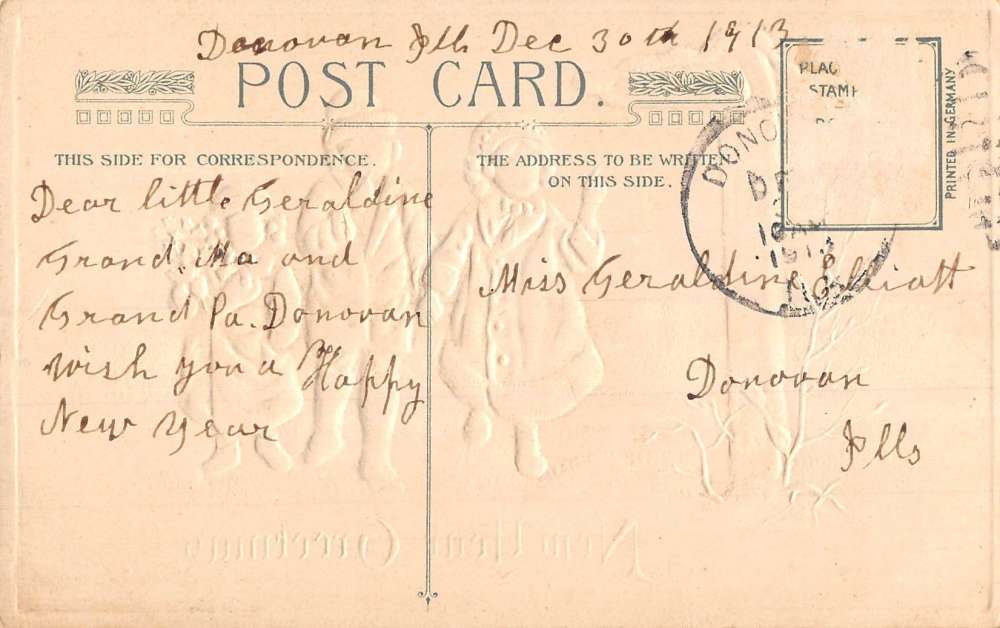 Donovan Ills Dec 30th 1913
POST CARD.
PLAC
STAMP
PRINTED IN GERMANY
THIS SIDE FOR CORRESPONDENCE.
THE ADDRESS TO BE WRITTEN
ON THIS SIDE.
DONO
DE
1913
Dear little Geraldine
Grand Ma and
Grand Pa. Donovan
wish you a Happy
New Year
Miss Geraldine Elliott
Donovan
Ills
New Year Greetings